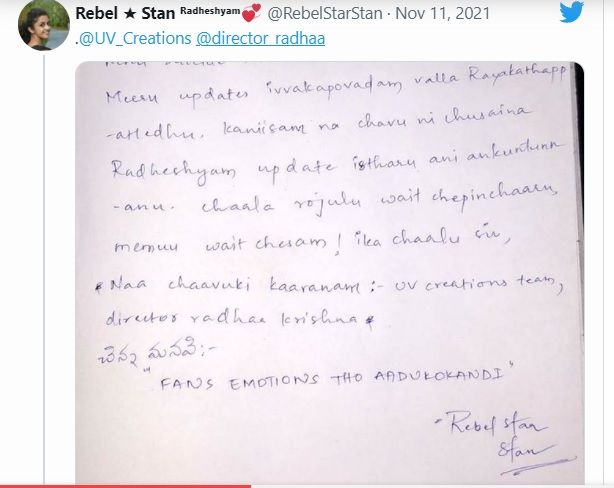 Rebel ★ Stan Radheshyam💞 @RebelStarStan · Nov 11, 2021
.@UV_Creations @director_radhaa
Meeru updates ivvakapovadam valla Rayakathapp
-atledhu. kaniisam na chavu ni chusaina
Radheshyam update istharu ani ankuntunn
-anu. chaala rojulu wait chepinchaaru,
memuu wait chesam! ika chaalu sir,
* Naa chaavuki kaaranam:- UV creations team,
director radhaa krishna *
చిన్న మనవి:-
"FANS EMOTIONS THO AADUKOKANDI"
- Rebel stan
Stan